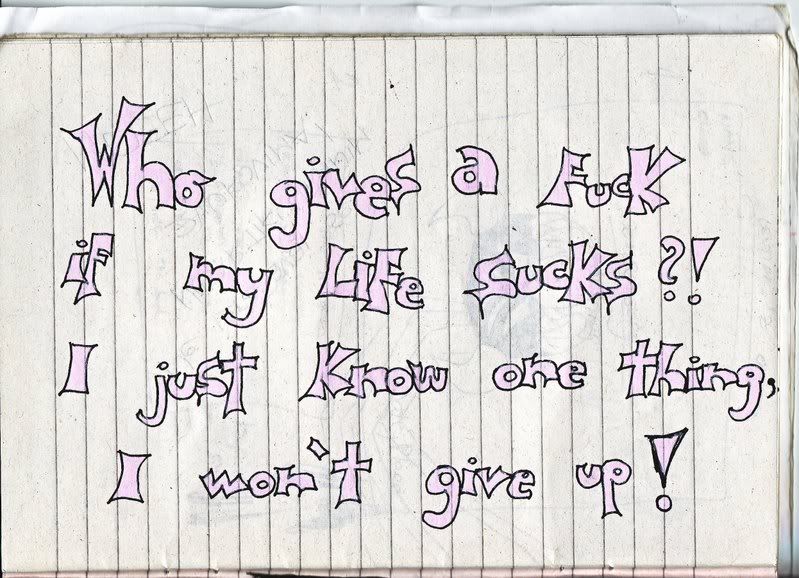 Who gives a Fuck
if my Life Sucks?!
I just Know one thing,
I won't give up!